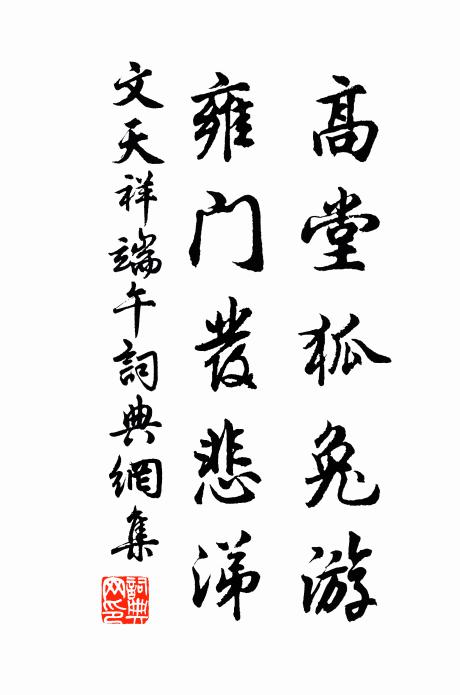 高堂狐兔游
雍门發悲涕
文天祥端午詞典網集
詞典网印